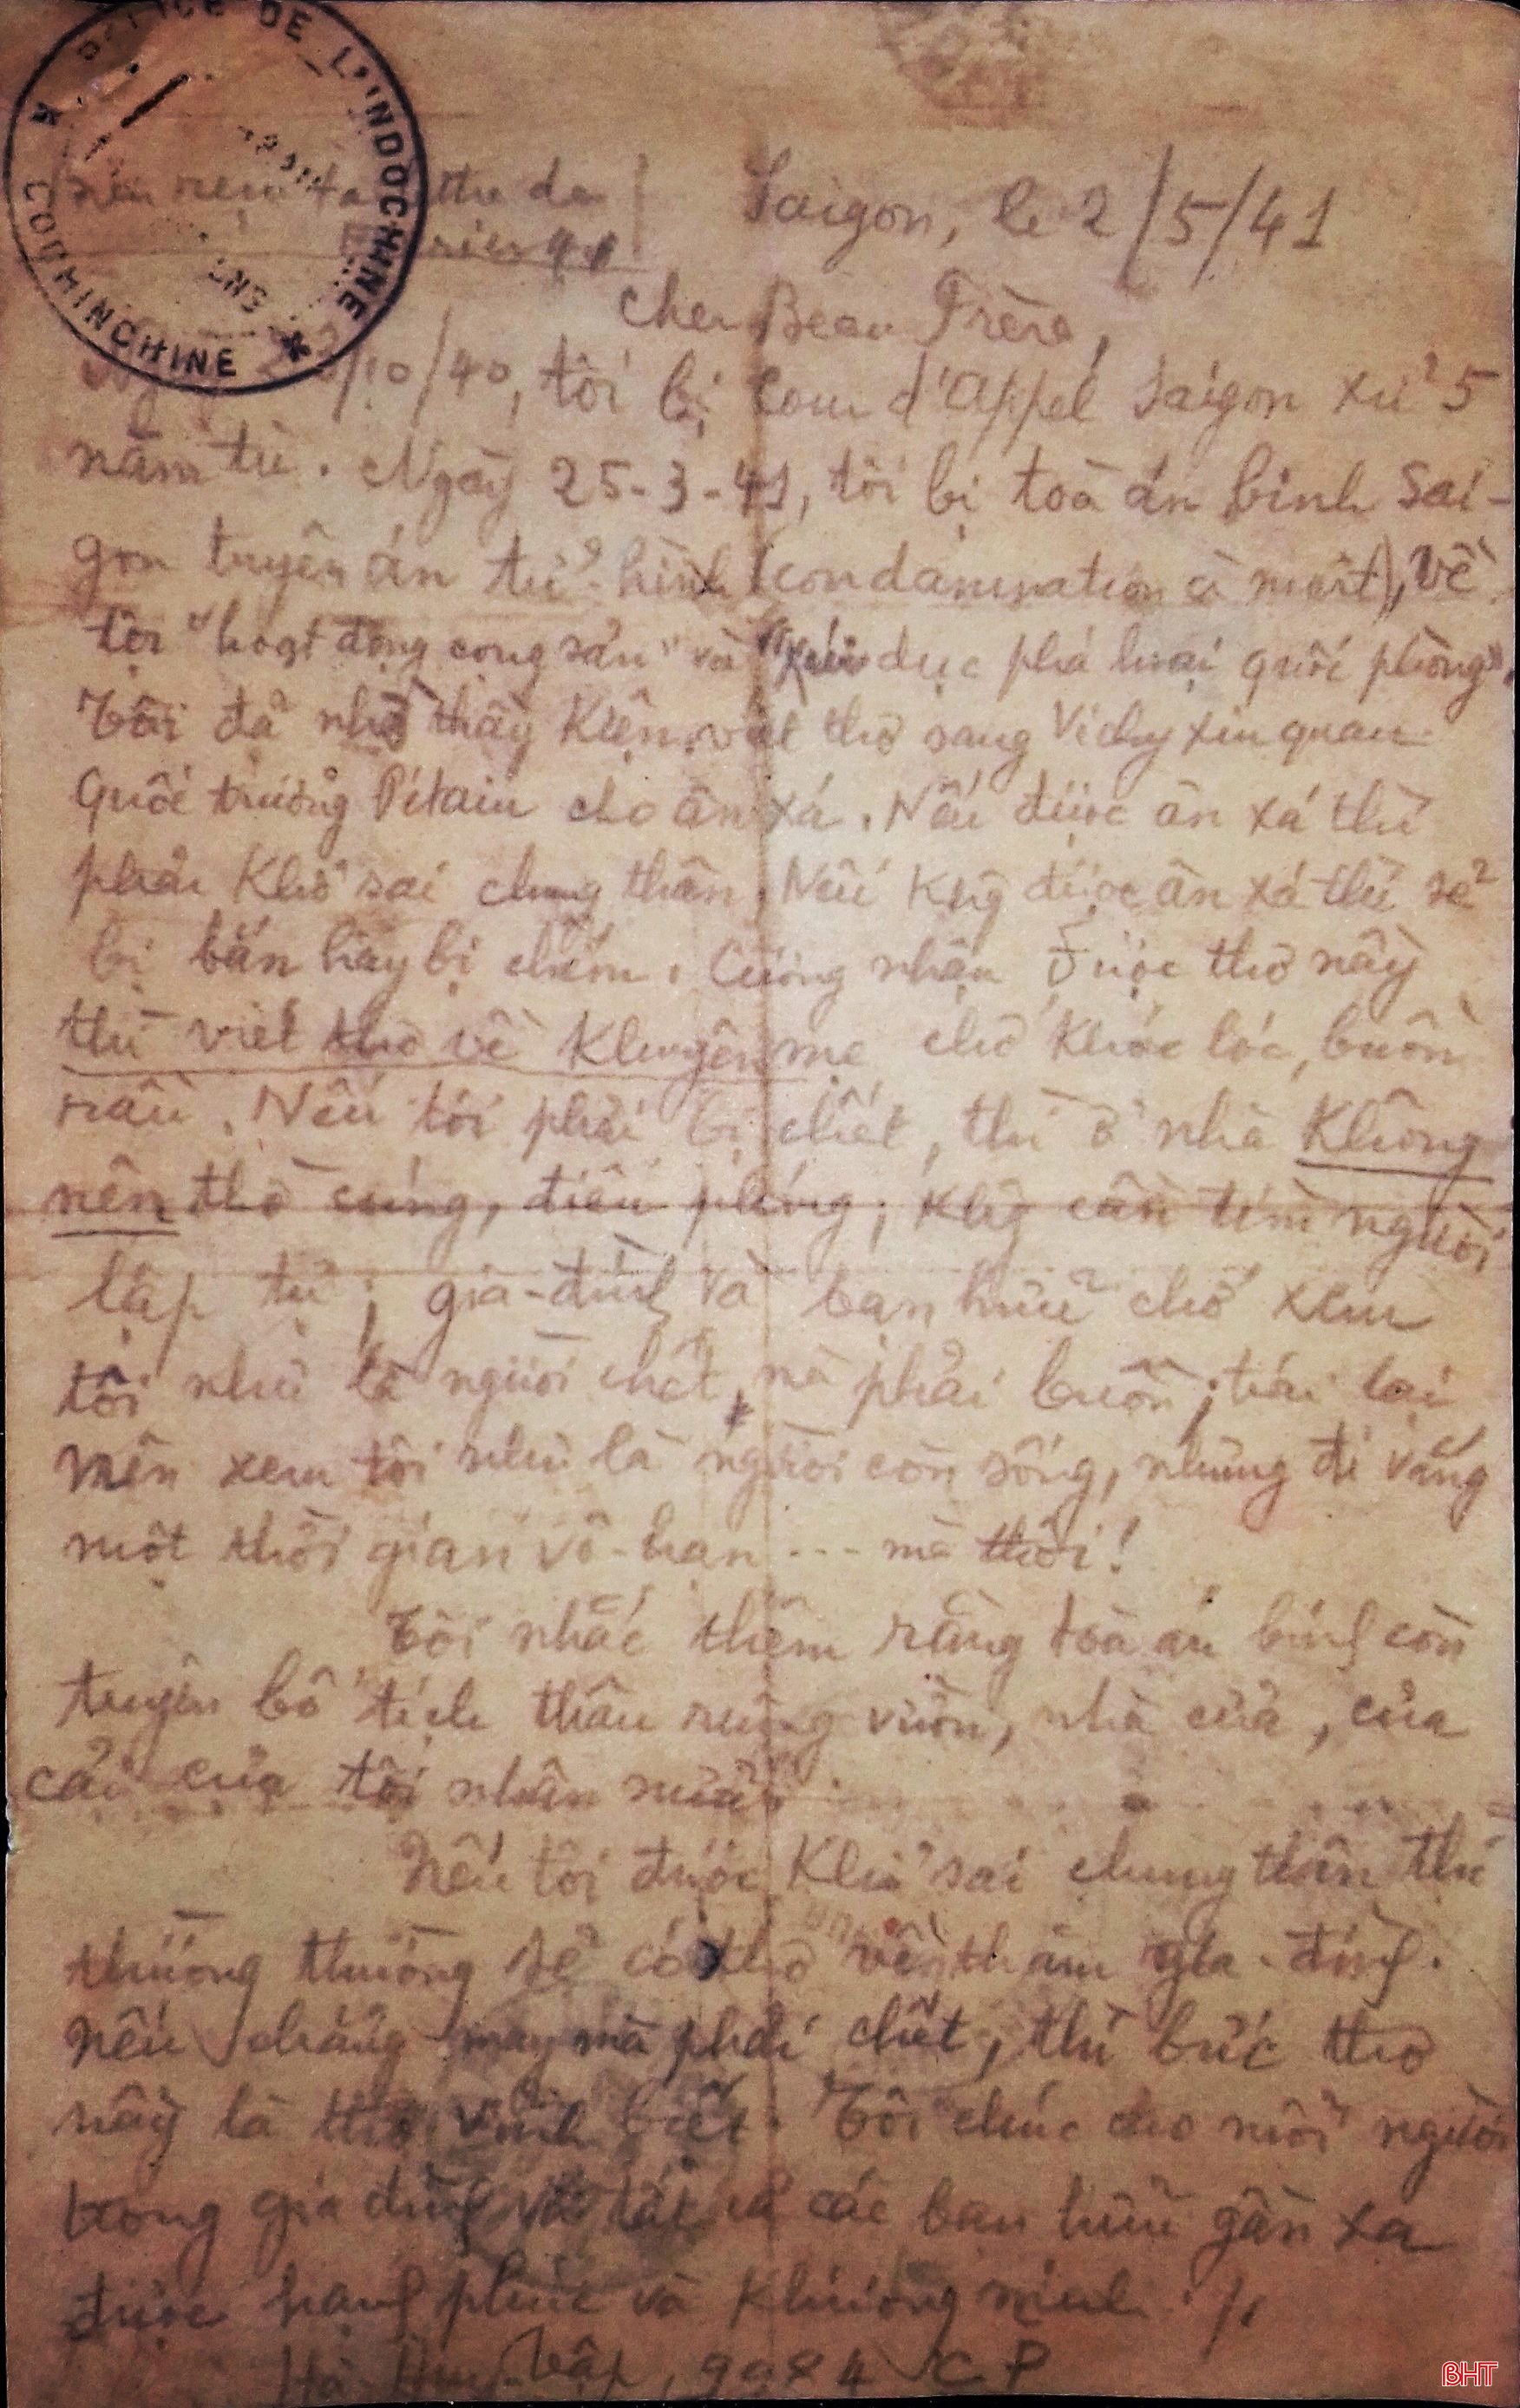 POLICE DE L'INDOCHINE
COCHINCHINE
thu da
Saigon, le 2/5/41
Cher Beau Frère,
/10/40, tôi bị Cour d'Appel Saigon xử 5
năm tù. Ngày 25-3-41, tôi bị toà án binh Sai-
gon truyên án tử-hình (condamnation à mort), về
tội "hoạt động cọng sản" và dục phá hoại quốc phòng".
Tôi đả nhờ thầy Kiện viết thơ sang Vichy xin quan
Quốc trưởng Pétain cho ân xá. Nếu được ân xá thì
phải Khổ sai chung thân. Nếu Khg được ân xá thì sẻ
bị bắn hay bị chém. Cương nhận được thơ nầy
thì viết thơ về Khuyên mẹ chớ khóc lóc, buồn
rầu. Nếu tôi phải bị chết, thì ở nhà Không
nên thờ cúng, điếu phúng; Khg cần tìm người
lập tự; gia-đình và bạn hữu chớ xem
tôi như là người chết mà phải buồn; trái lại
nên xem tôi như là người còn sống, nhưng đi vắng
một thời gian vô-hạn --- mà thôi!
Tôi nhắc thêm rằng toà án binh còn
tuyên bố tịch thâu ruộng vườn, nhà cửa, của
cải của tôi nhân nữa.
Nếu tôi được Khổ sai chung thân thì
thường thường sẻ có thơ về thăm gia-đình.
Nếu chẳng may mà phải chết, thì bức thơ
nầy là thơ vĩnh biệt. Tôi chúc cho mỗi người
trong gia đình và tất cả các bạn hữu gần xa
được hạnh phúc và Khương ninh ./.
Hà Huy-Tập, 9084 CP
BHT